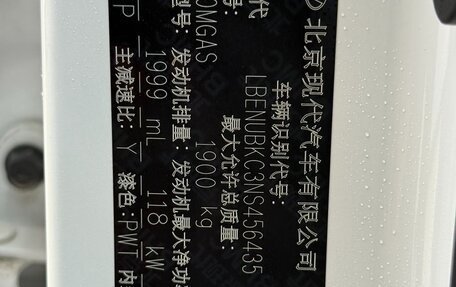 北京现代汽车有限公司
代
车辆识别代号:
号:
LBENUBKC3NS456435
最大允许总质量:
OMGAS
1900 kg
型号: 发动机排量: 发动机最大净功
1999 mL 118 kW
P
主减速比: Y 漆色: PWT 内